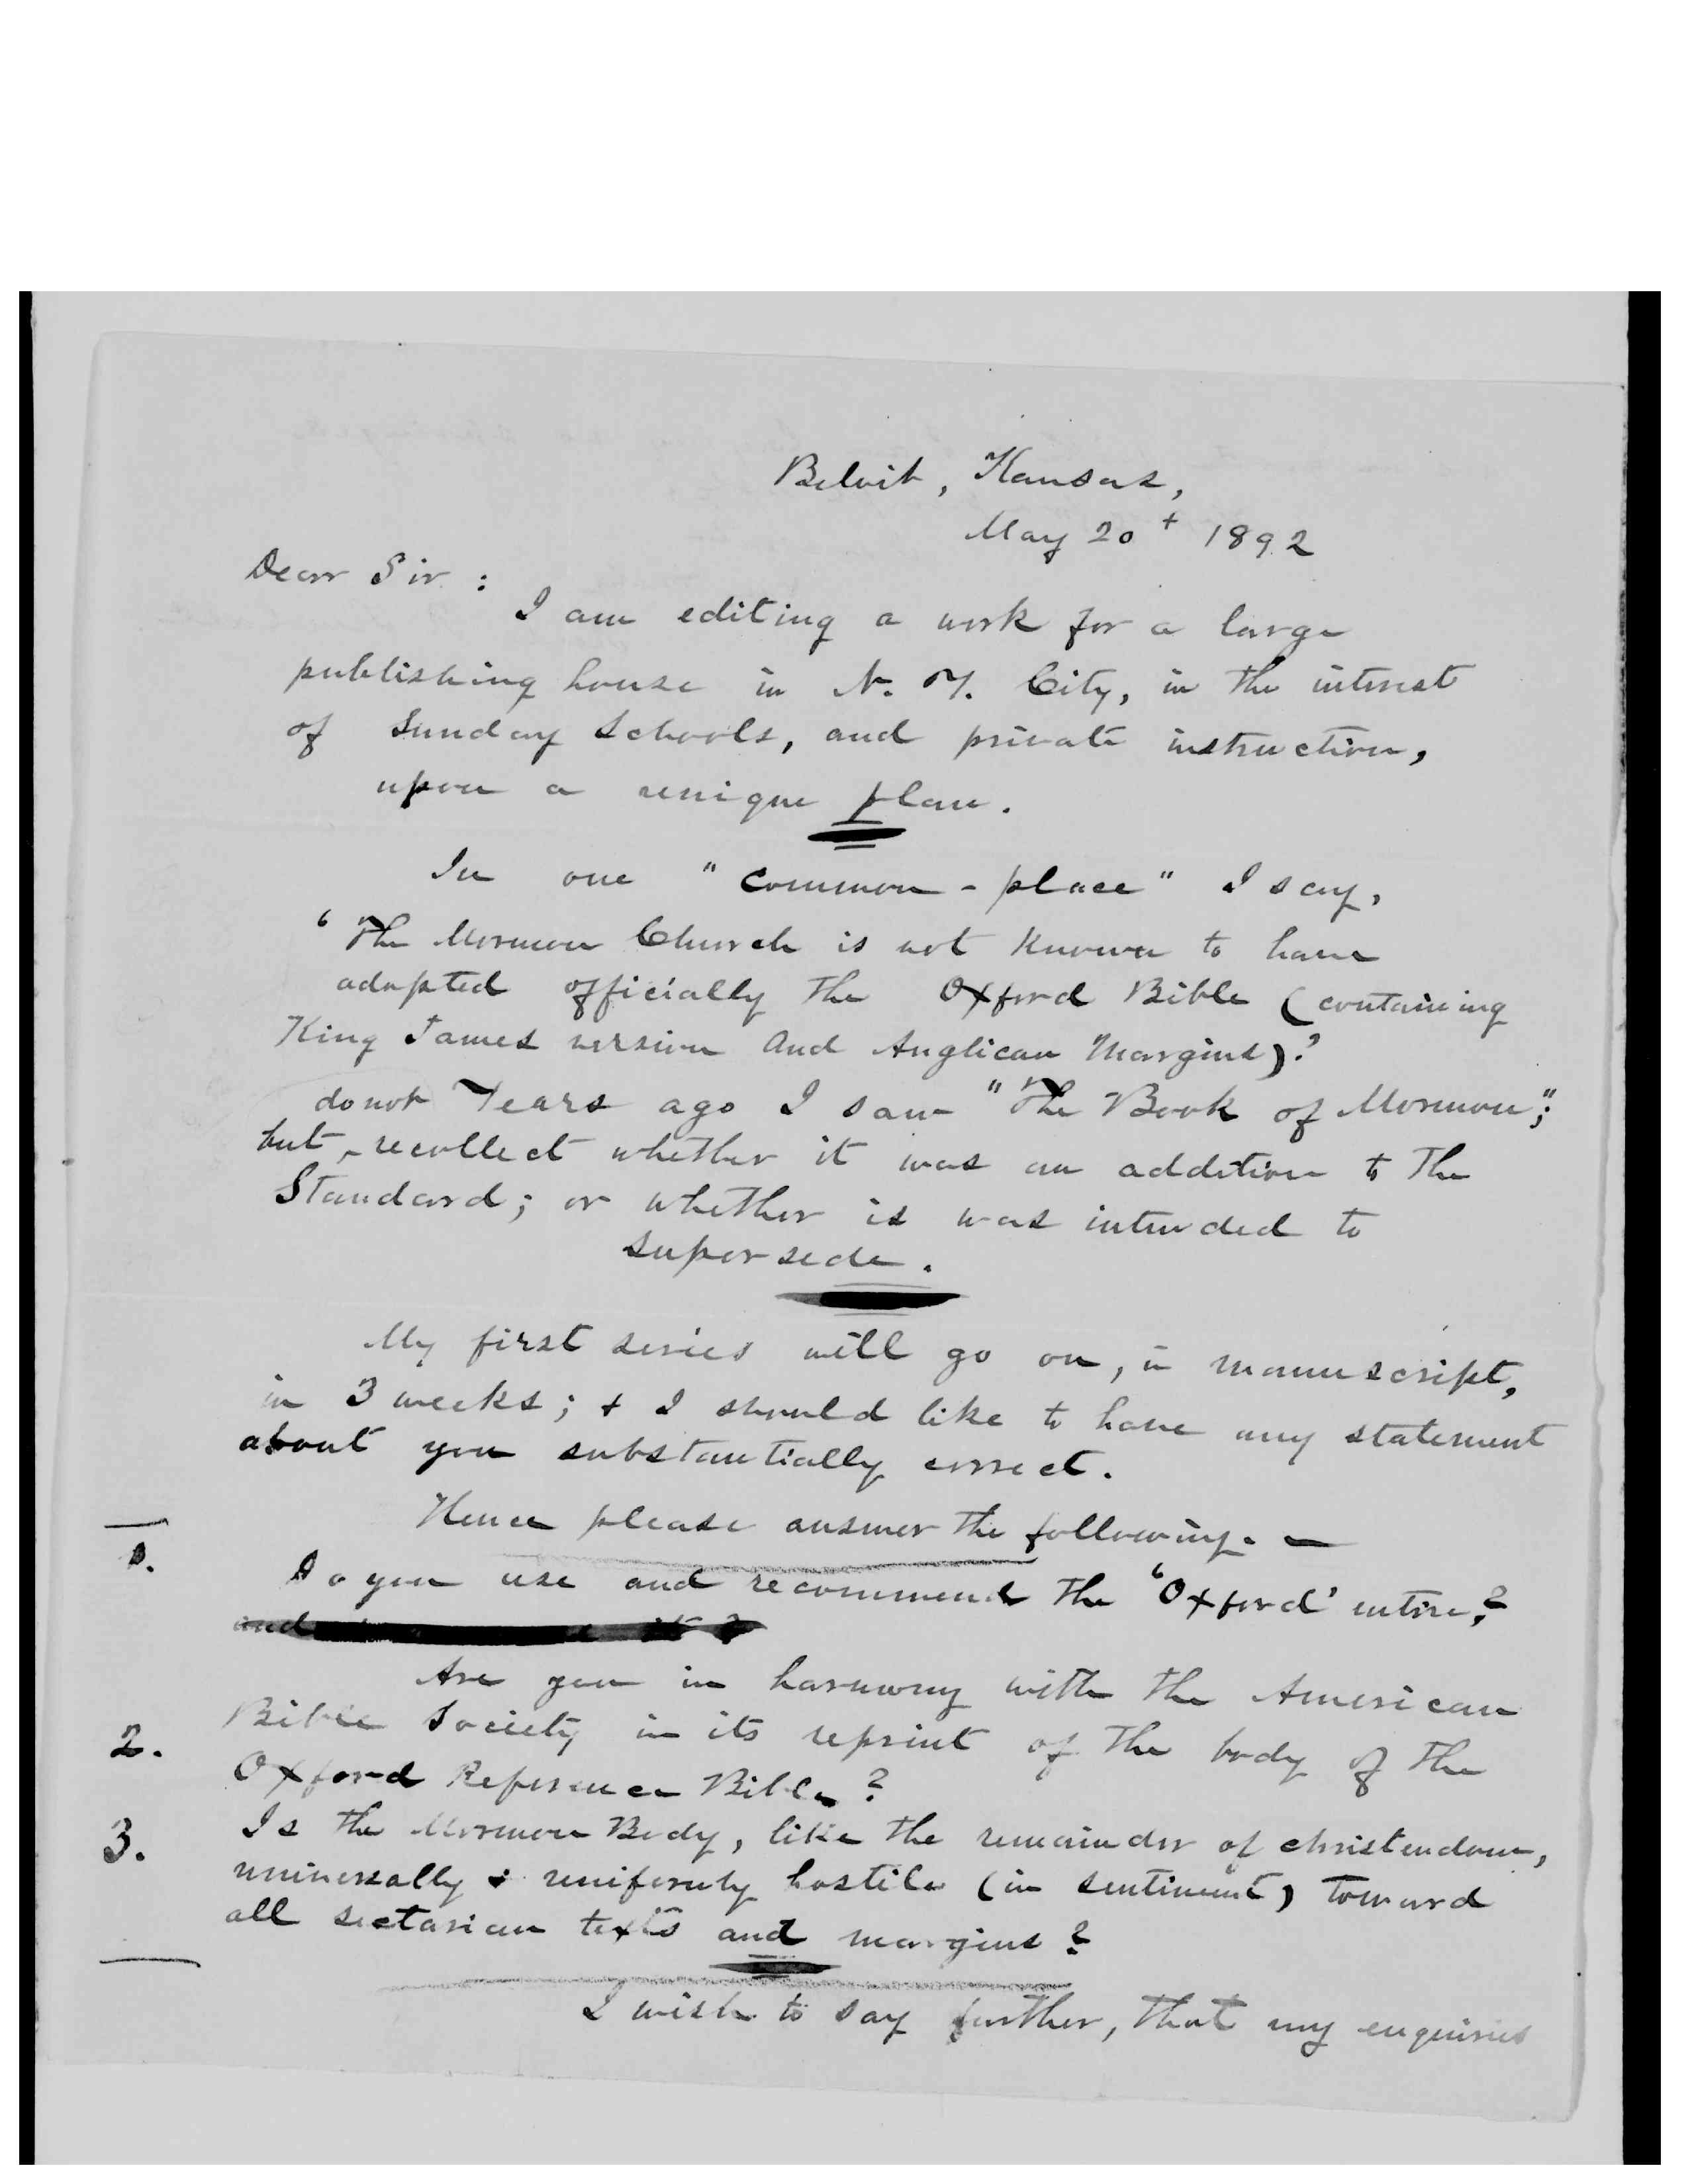 Beloit, Kansas,
May 20+ 1892
Dear Sir:
I am editing a work for a large
publishing house in N. Y. City, in the interest
of Sunday Schools, and private instruction,
upon a unique plan.
In one "common-place" I say,
'The Mormon Church is not known to have
adopted officially the Oxford Bible (containing
King James version and Anglican Margins).'
Years ago I saw "The Book of Mormon";
but do not recollect whether it was an addition to the
Standard; or whether is was intended to
supersede.
My first series will go on, in manuscript,
in 3 weeks; + I should like to have any statement
about you substantially correct.
Hence please answer the following. —
1. Do you use and recommend the 'Oxford' entire,?
and it?
Are you in harmony with the American
2. Bible Society in its reprint of the body of the
Oxford Reference Bible?
3. Is the Mormon Body, like the remainder of christendom,
universally & uniformly hostile (in sentiment) toward
all sectarian texts and margins?
I wish to say further, that my enquiries